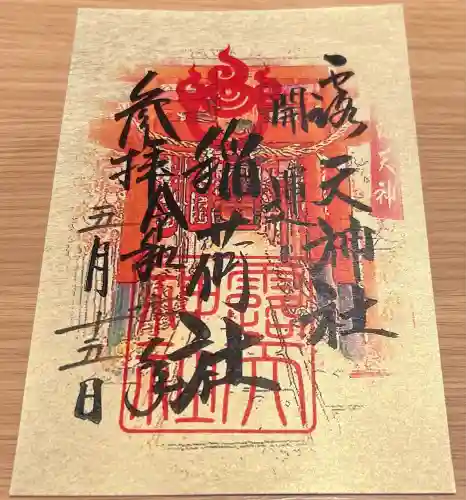 露天神社
開運稲荷社
参拝令和年
五月十五日
天神